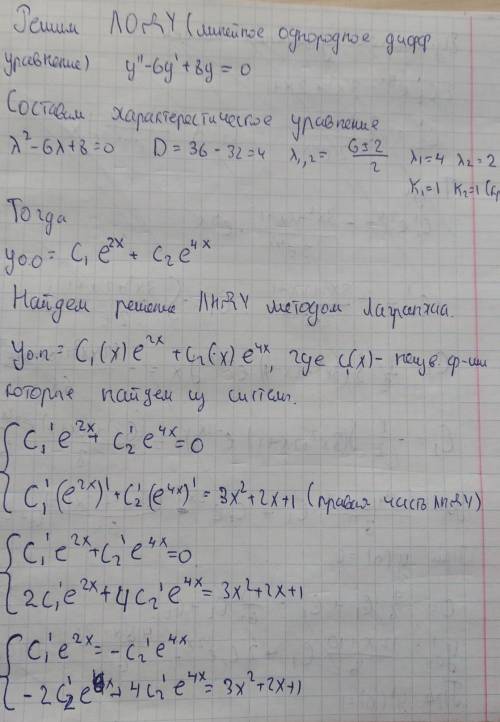 Решим ЛОДУ (линейное однородное дифф
уравнение) y'' - 6y' + 8y = 0
Составим характерестическое уравнение
λ² - 6λ + 8 = 0 D = 36 - 32 = 4 λ₁,₂ = (6 ± 2)/2 λ₁ = 4 λ₂ = 2
K₁ = 1 K₂ = 1
Тогда
yo.o = C₁ e^{2x} + C₂ e^{4x}
Найдем решение ЛНДУ методом Лагранжа.
yо.п = C₁(x) e^{2x} + C₂(x) e^{4x}, где Cᵢ(x) - неизв. ф-ции
которые найдем из систем.
{ C₁' e^{2x} + C₂' e^{4x} = 0
{ C₁' (e^{2x})' + C₂' (e^{4x})' = 3x² + 2x + 1 (правая часть ЛНДУ)
{ C₁' e^{2x} + C₂' e^{4x} = 0
{ 2C₁' e^{2x} + 4C₂' e^{4x} = 3x² + 2x + 1
{ C₁' e^{2x} = -C₂' e^{4x}
{ -2C₂' e^{4x} + 4C₂' e^{4x} = 3x² + 2x + 1